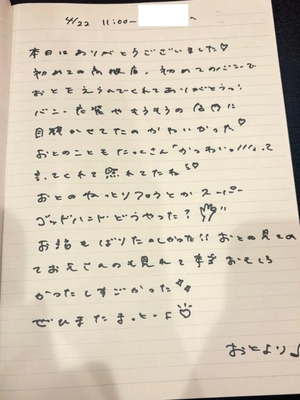 4/22 11:00〜 へ
本日はありがとうございました♡
初めての 店、初めてのバニーで
おとをえらんでくれてありがとうっ!
バニー衣装やもうもうの店内に
目輝かせてたのかわいかった♡
おとのこともたっくさん「かっわいい////」って
言ってくれて照れてたね
おとのねっとりフェラとかスーパー
ゴッドハンドどうやった?
お話もばりたのしかった!! おとの見たの
てお兄さんのも見れて本当おもしろ
かったしすごかった
ぜひまたまっとーよ♡
おとより♪